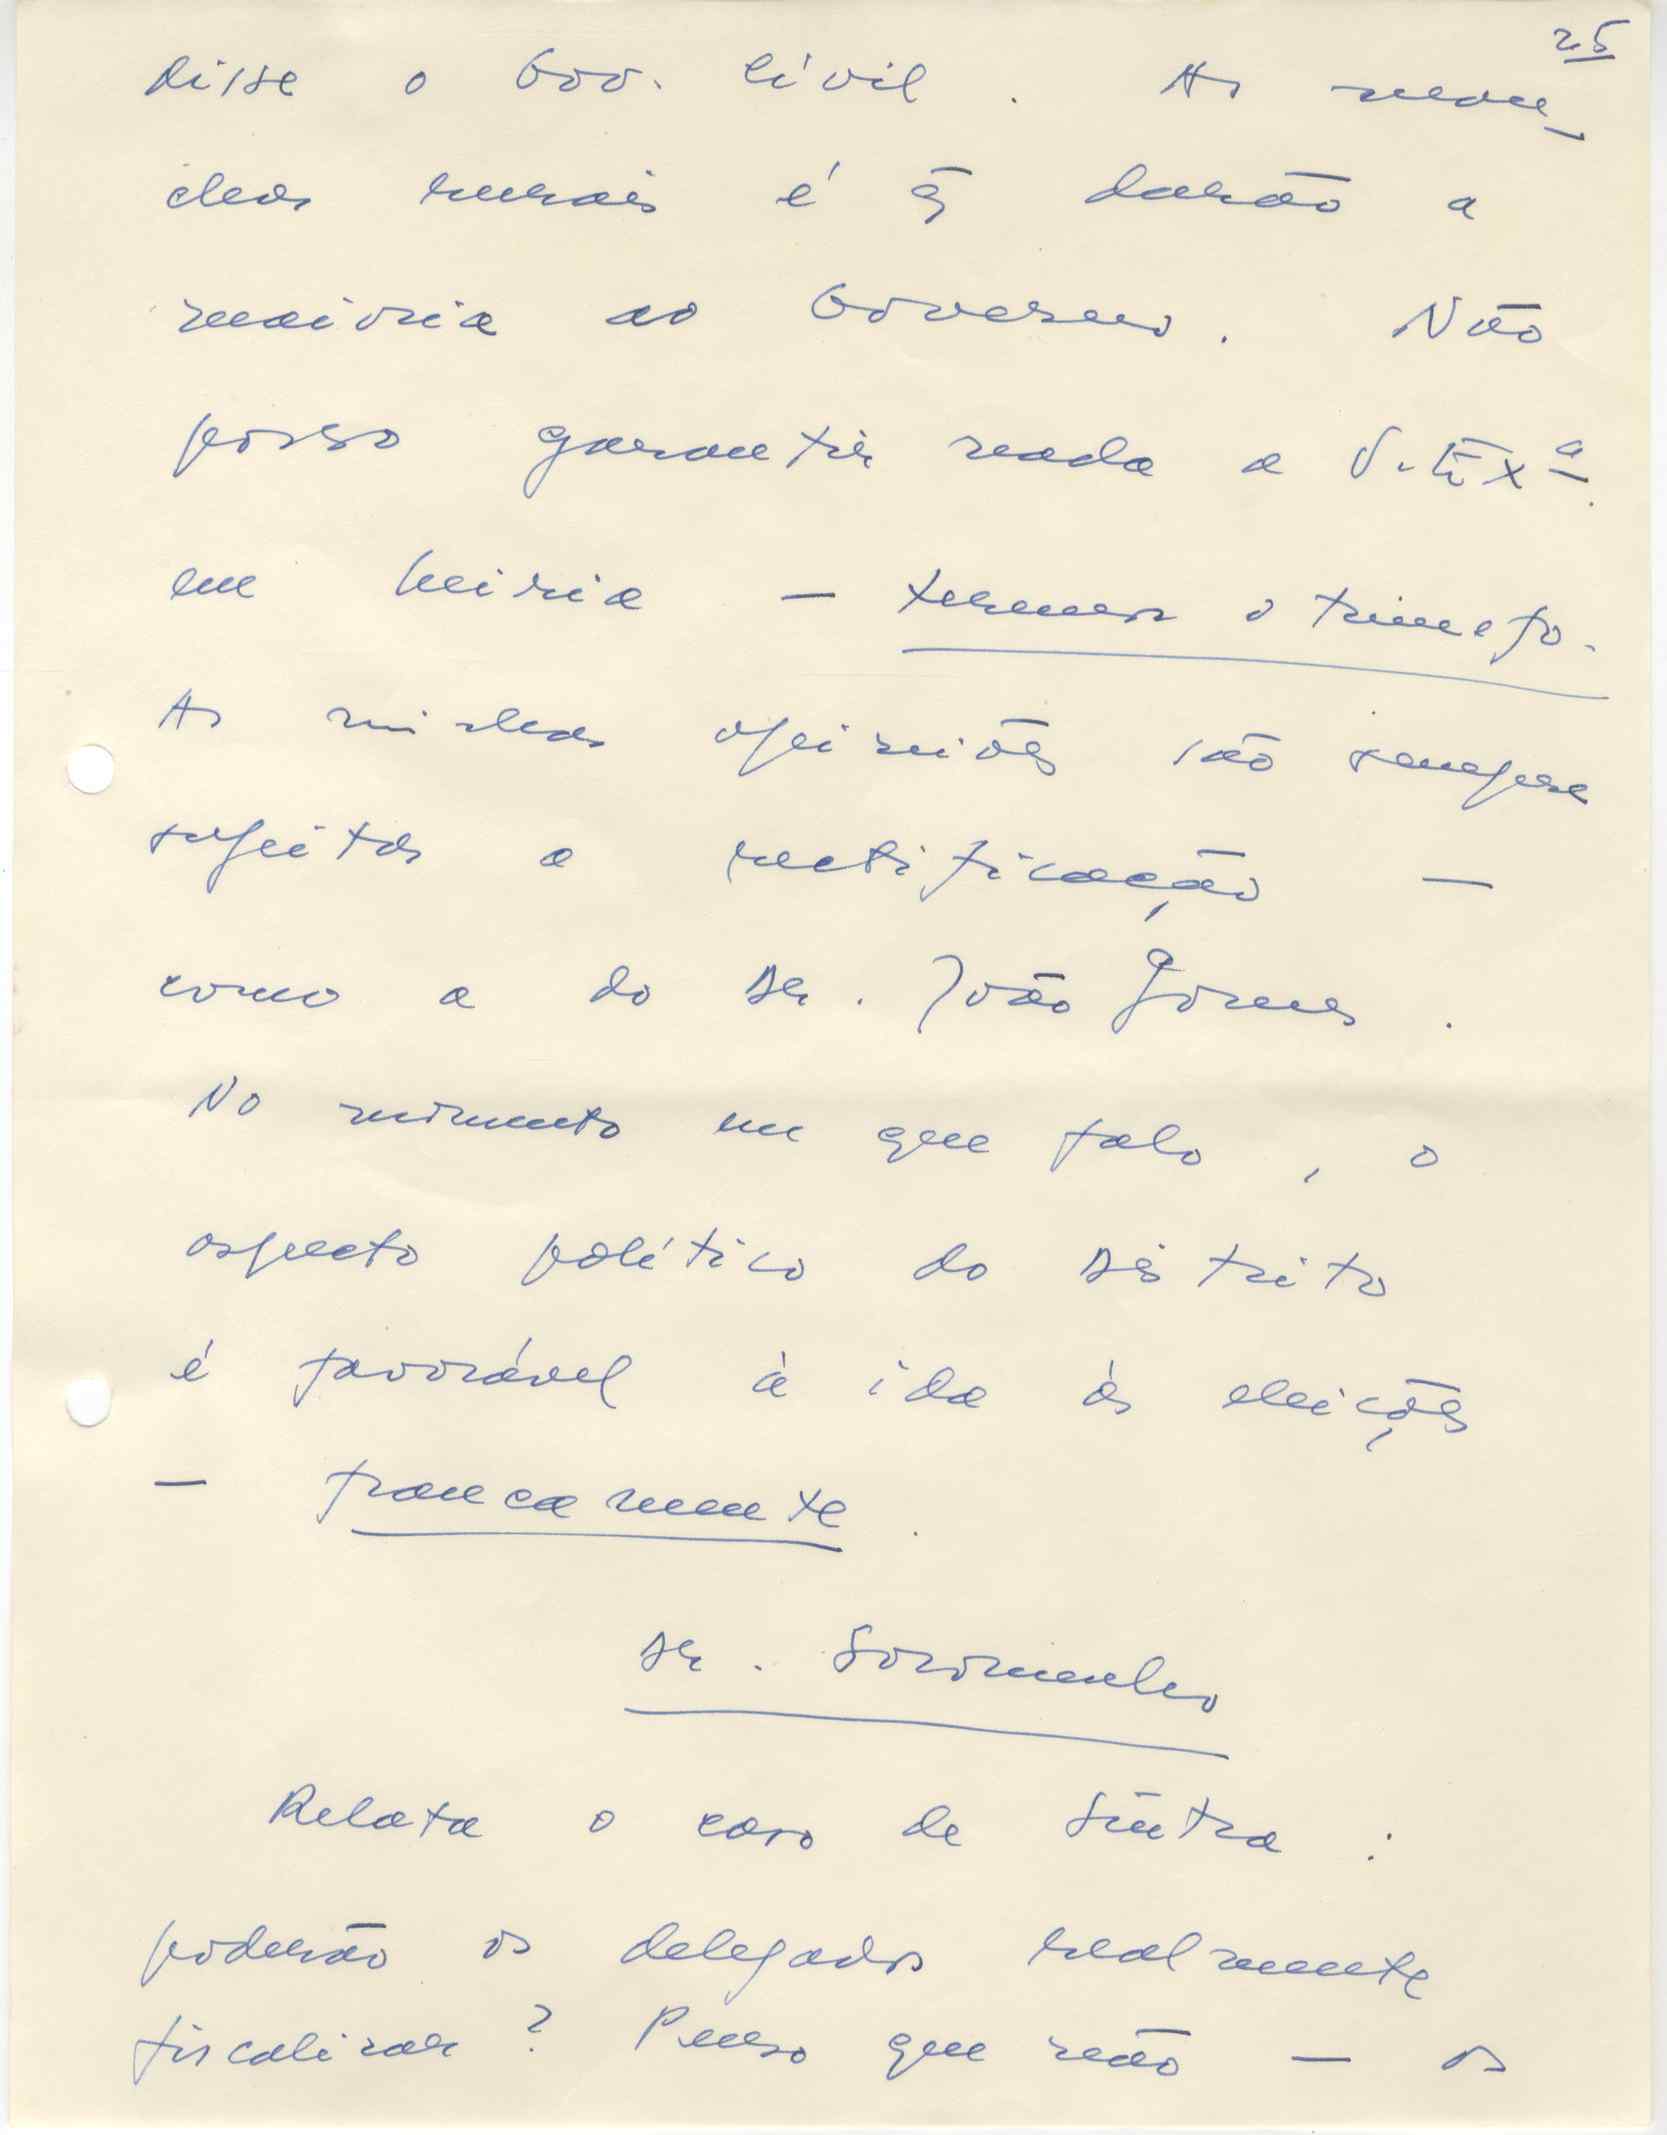 25
disse o Gov. Civil. As man-
chas rurais é q̃ darão a
maioria ao Governo. Não
posso garantir nada a V. Exª.
em Leiria — teremos o trunfo.
As minhas opiniões são sempre
sujeitas a rectificação —
como a do Dr. João Gomes.
No momento em que falo, o
aspecto político do Distrito
é favorável à ida às eleições
— francamente.
Dr. Soromenho
Relata o caso de Sintra:
poderão os delegados realmente
fiscalizar? Penso que não — os